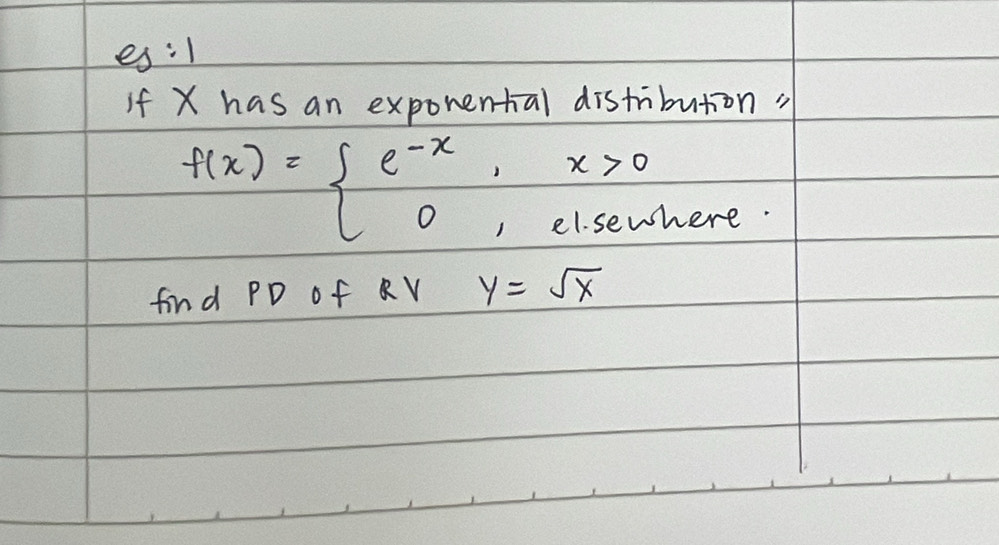 es:1
If X has an exponential distribution "
f(x) = { e^-x , x > 0
0 , elsewhere.
find PD of RV Y = √X